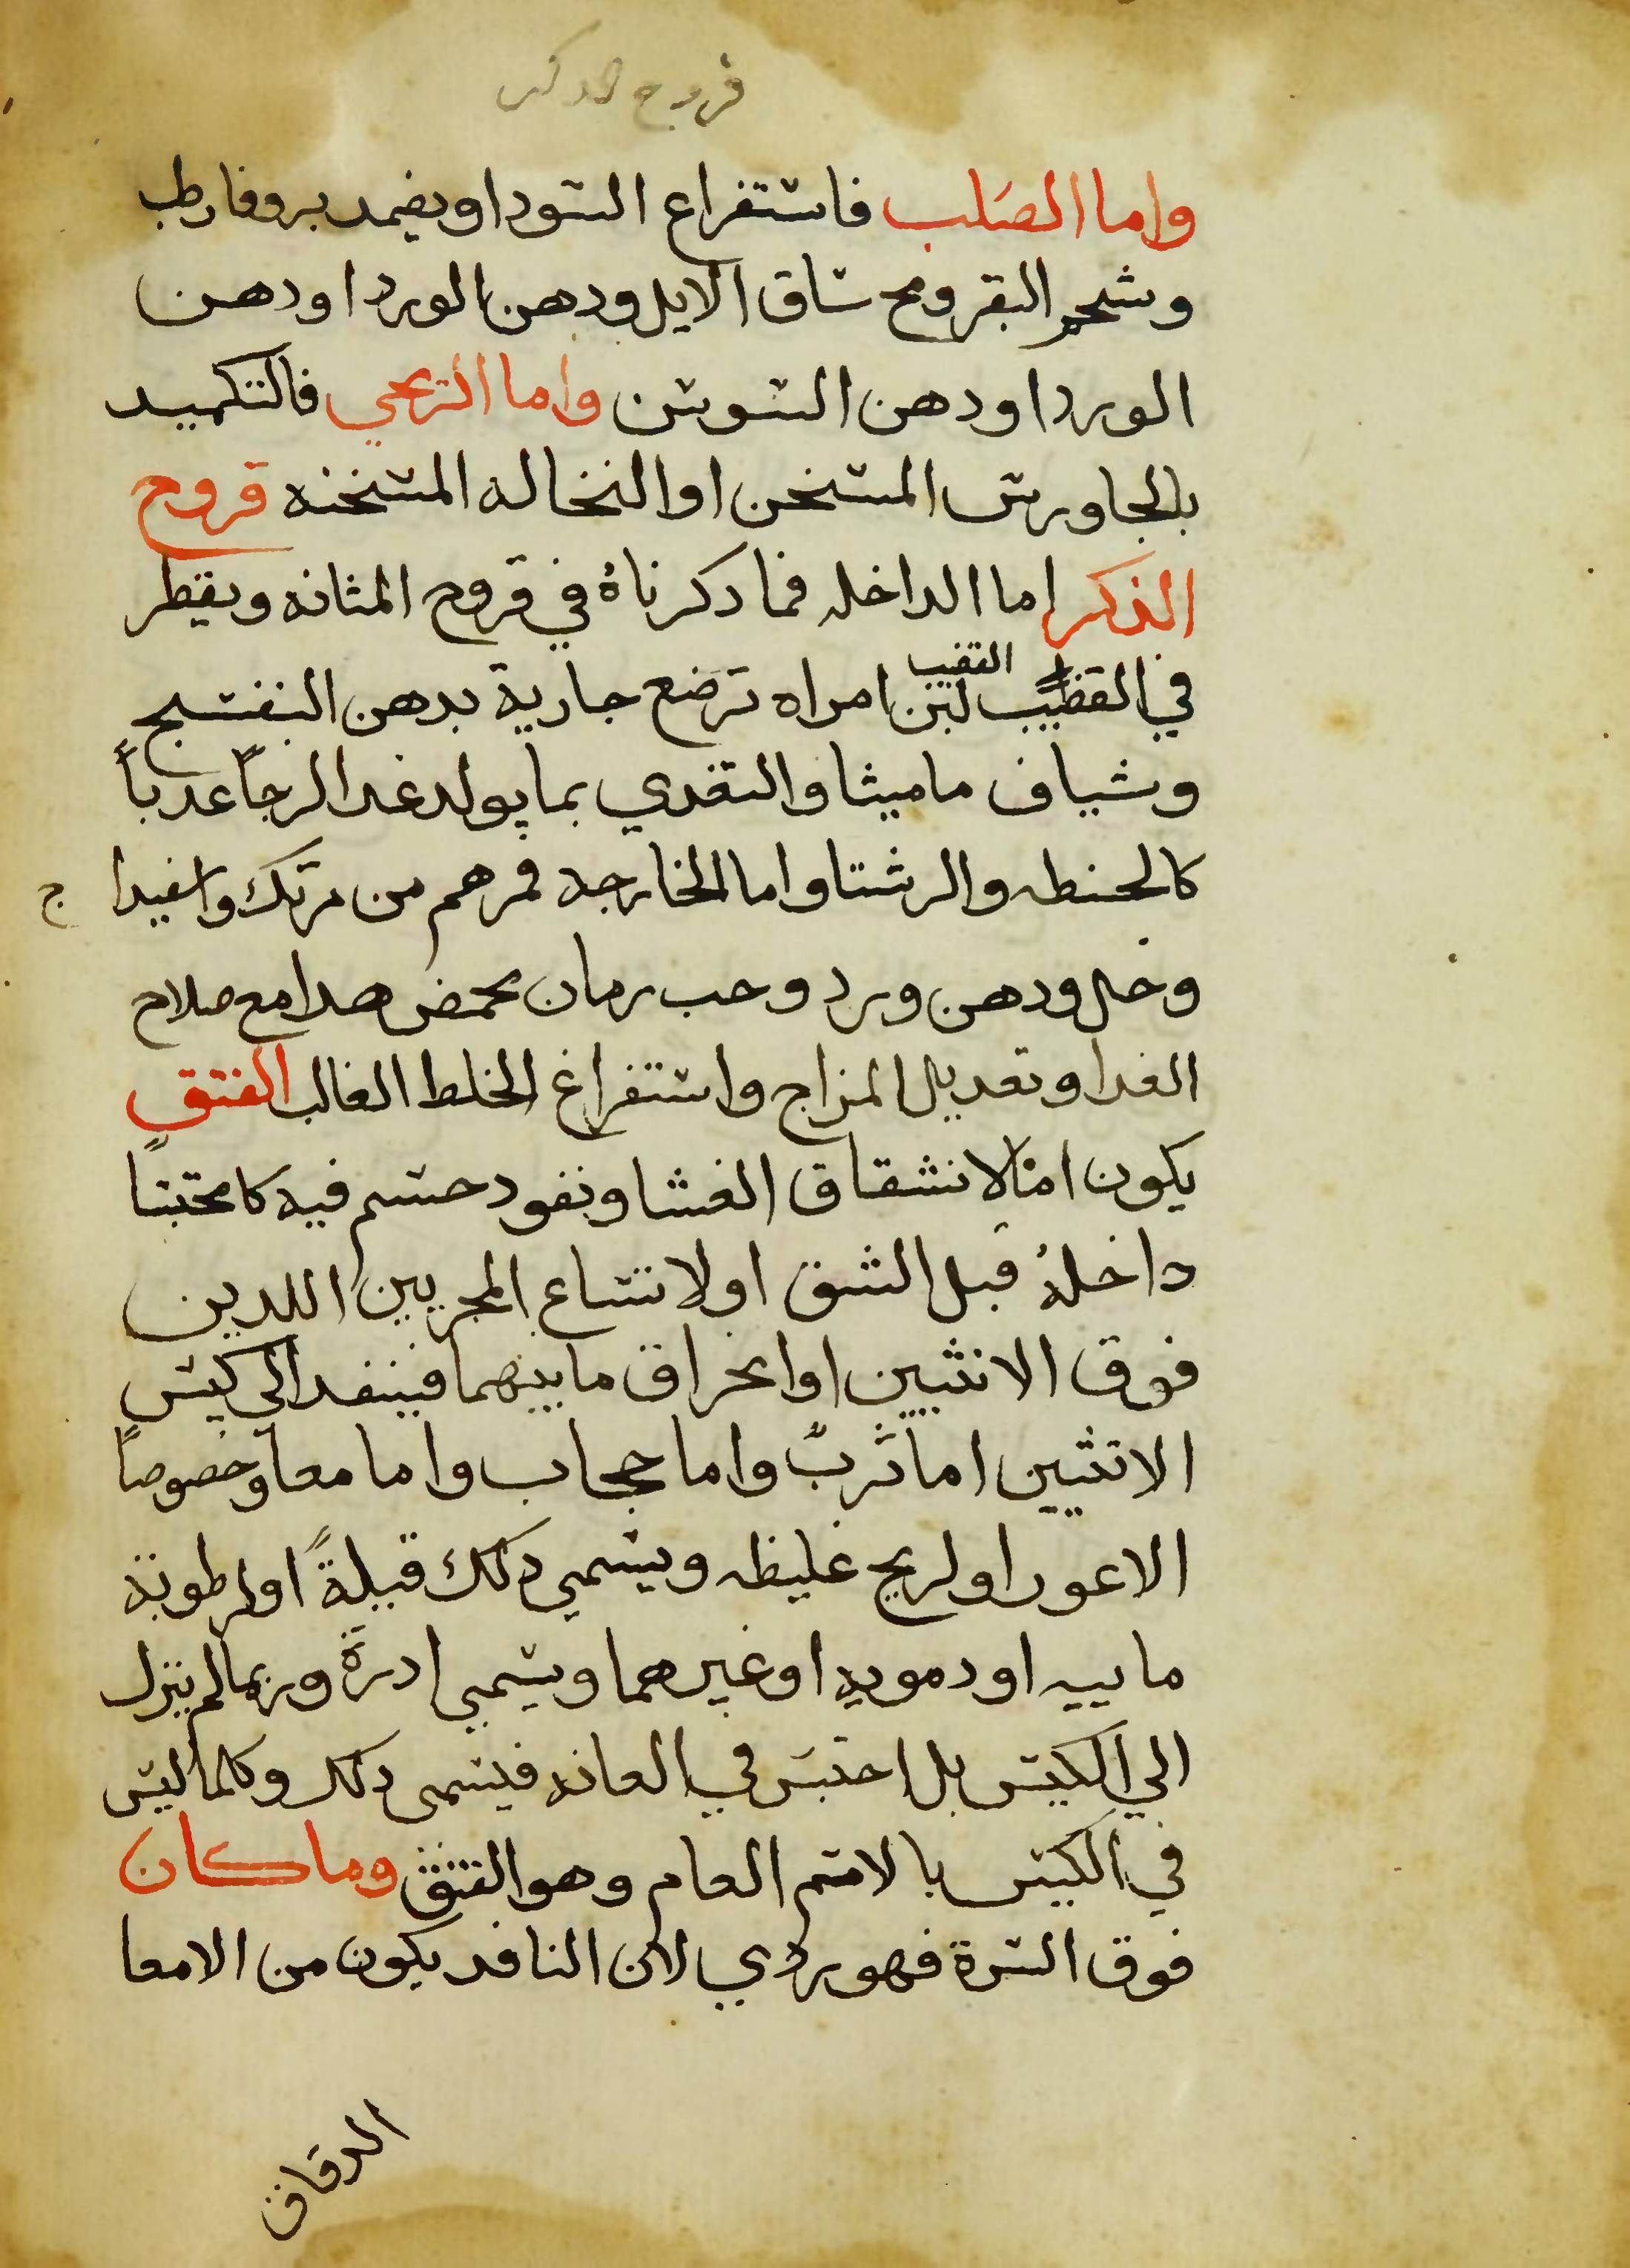 قروح الدكر
واما الصلب فاستفراغ السودا ويضمد بروفا رطب
وشحم البقر ومخ ساق الايل ودهن الورد او دهن
الورد او دهن السوسن واما الريحي فالتكميد
بالجاورس المسخن او النخاله المسخنه قروح
الذكر اما الداخله فما دكرناهُ في قروح المثانه ويقطر
القضيب
في القضيب لبن امراه ترضع جارية بدهن البنفسج
وشياف ماميثا والتغدي بما يولد غدا لزجاً عدباً
كالحنطه والرشتا واما الخارجه فمرهم من مرتك واسفيدا ج
وخل ودهن ورد وحب رمان محمض هدا مع صلاح
الغدا وتعديل المزاج واستفراغ الخلط الغالب الفتق
يكون امّا لانشقاق الغشا ونفود جسم فيه كا محتبسًا
داخلهُ قبل الشق او لاتساع المجريين اللدين
فوق الانثيين او انخراق ما بينهما فينفد الي كيس
الانثيين اما ثربٌ واما حجاب واما معا وخصوصاً
الاعور او لريح غليظه ويسمي دلك قيلةً او لرطوبة
ماييه او دمويه او غيرهما ويسمي ادرةً وربما لم ينزل
الي الكيس بل احتبس في العانه فيسمى دلك وكلما ليس
في الكيس بالاسم العام وهو الفتق وما كان
فوق السرة فهو ردي لان النافد يكون من الامعا
الدقاق